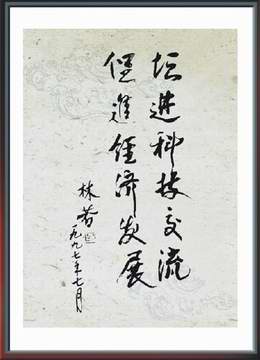 增進科技交流
促進經濟发展
林芳
一九九七年七月